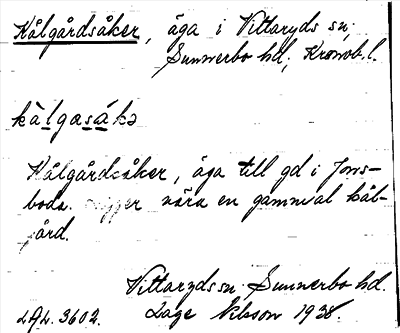 Kålgårdsåker, äga i Vittaryds sn,
Sunnerbo hd, Kronob. l.
kålgasákə
Kålgårdsåker, äga till gd i Jons-
boda. Ligger nära en gammal kål-
gård.
Vittaryds sn Sunnerbo hd.
LAL. 3602. Lage Nilsson 1938.